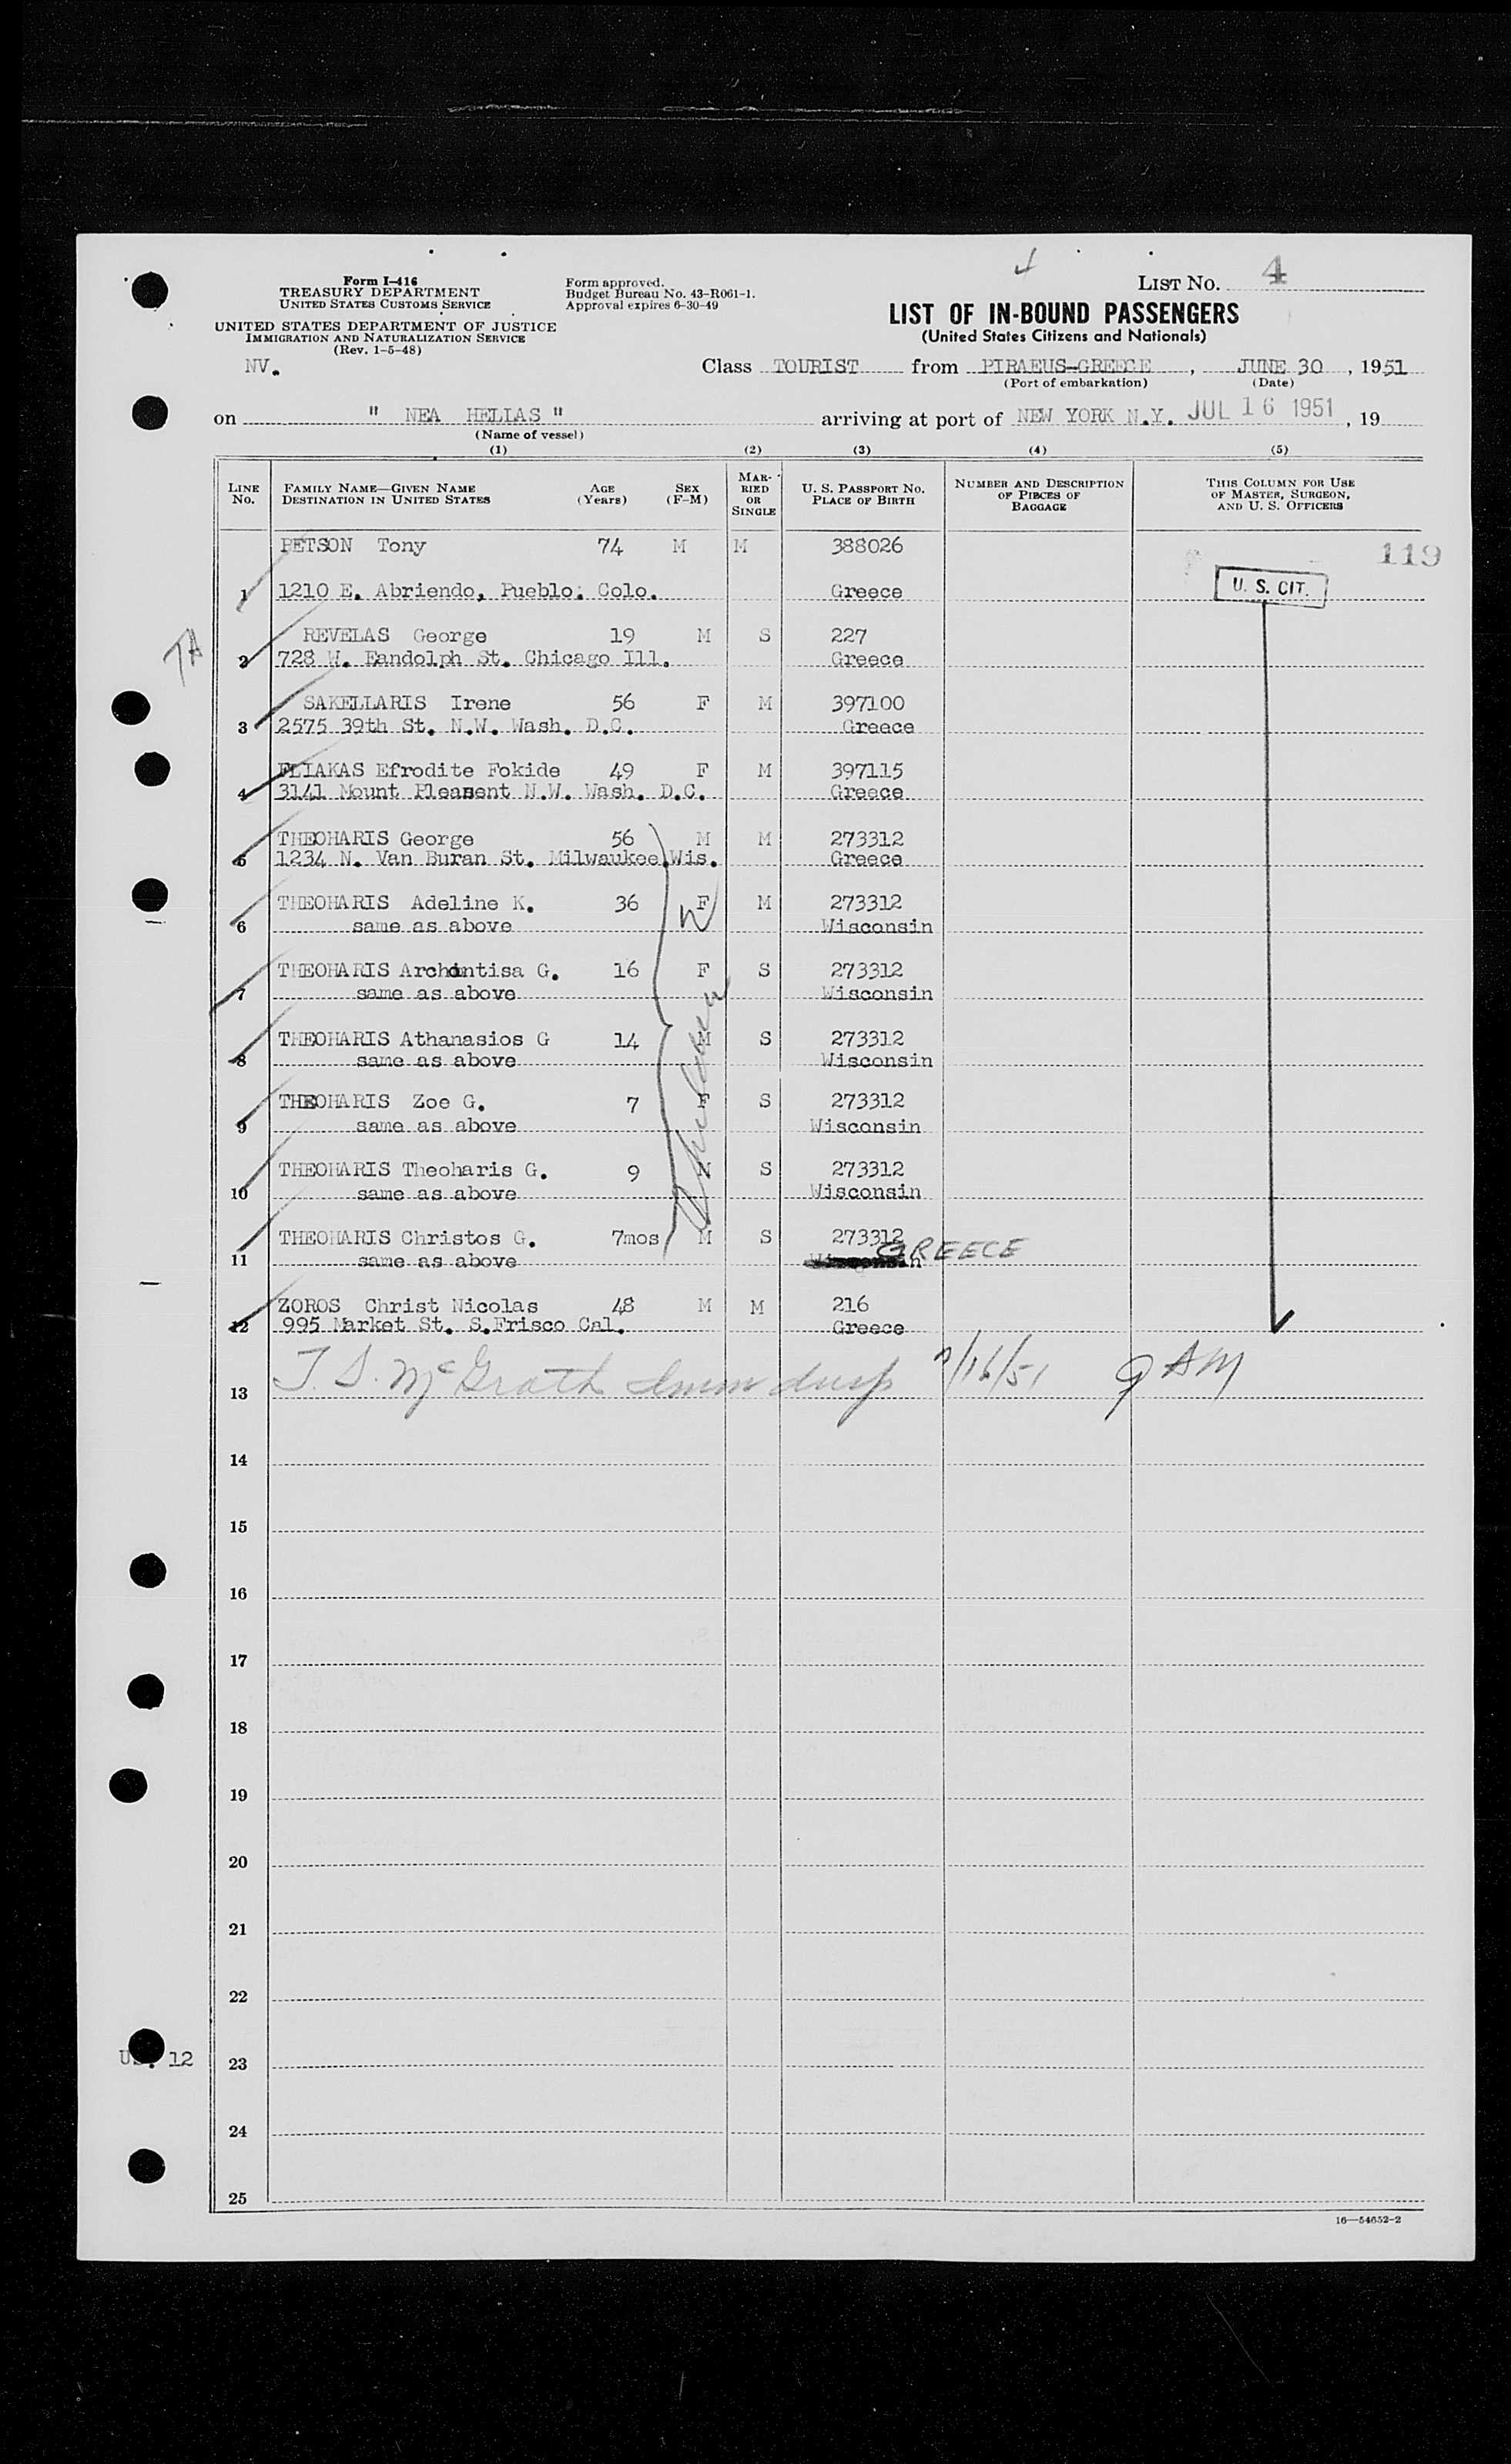 4
LIST NO. 4
Form I-416
TREASURY DEPARTMENT
UNITED STATES CUSTOMS SERVICE
Form approved.
Budget Bureau No. 43-R061-1.
Approval expires 6-30-49
LIST OF IN-BOUND PASSENGERS
(United States Citizens and Nationals)
UNITED STATES DEPARTMENT OF JUSTICE
IMMIGRATION AND NATURALIZATION SERVICE
(Rev. 1-5-48)
NV.
Class TOURIST from PIRAEUS-GREECE, JUNE 30, 1951
(Port of embarkation) (Date)
on " NEA HELIAS " arriving at port of NEW YORK N.Y. JUL 16 1951, 19
(Name of vessel)
(1) (2) (3) (4) (5)
LINE NO. FAMILY NAME—GIVEN NAME DESTINATION IN UNITED STATES AGE (Years) SEX (F-M) MARRIED OR SINGLE U. S. PASSPORT NO. PLACE OF BIRTH NUMBER AND DESCRIPTION OF PIECES OF BAGGAGE THIS COLUMN FOR USE OF MASTER, SURGEON, AND U. S. OFFICERS
PETSON Tony 74 M M 388026 119
1 1210 E. Abriendo, Pueblo. Colo. Greece U. S. CIT.
REVELAS George 19 M S 227
TA
2 728 W. Randolph St. Chicago Ill. Greece
SAKELLARIS Irene 56 F M 397100
3 2575 39th St. N.W. Wash. D.C. Greece
FLIAKAS Efrodite Fokide 49 F M 397115
4 3141 Mount Pleasent N.W. Wash. D.C. Greece
THEOHARIS George 56 M M 273312
5 1234 N. Van Buran St. Milwaukee Wis. Greece
THEOHARIS Adeline K. 36 F M 273312
6 same as above Wisconsin
THEOHARIS Archontisa G. 16 F S 273312
7 same as above Wisconsin
THEOHARIS Athanasios G 14 M S 273312
8 same as above Wisconsin
THEOHARIS Zoe G. 7 F S 273312
9 same as above Wisconsin
THEOHARIS Theoharis G. 9 M S 273312
10 same as above Wisconsin
THEOHARIS Christos G. 7mos M S 273312
11 same as above Wisconsin GREECE
ZOROS Christ Nicolas 48 M M 216
12 995 Market St. S.Frisco Cal. Greece
13 T. S. McGrath Imm Insp 7/16/51
14
15
16
17
18
19
20
21
22
23
12
24
25
16—54652-2